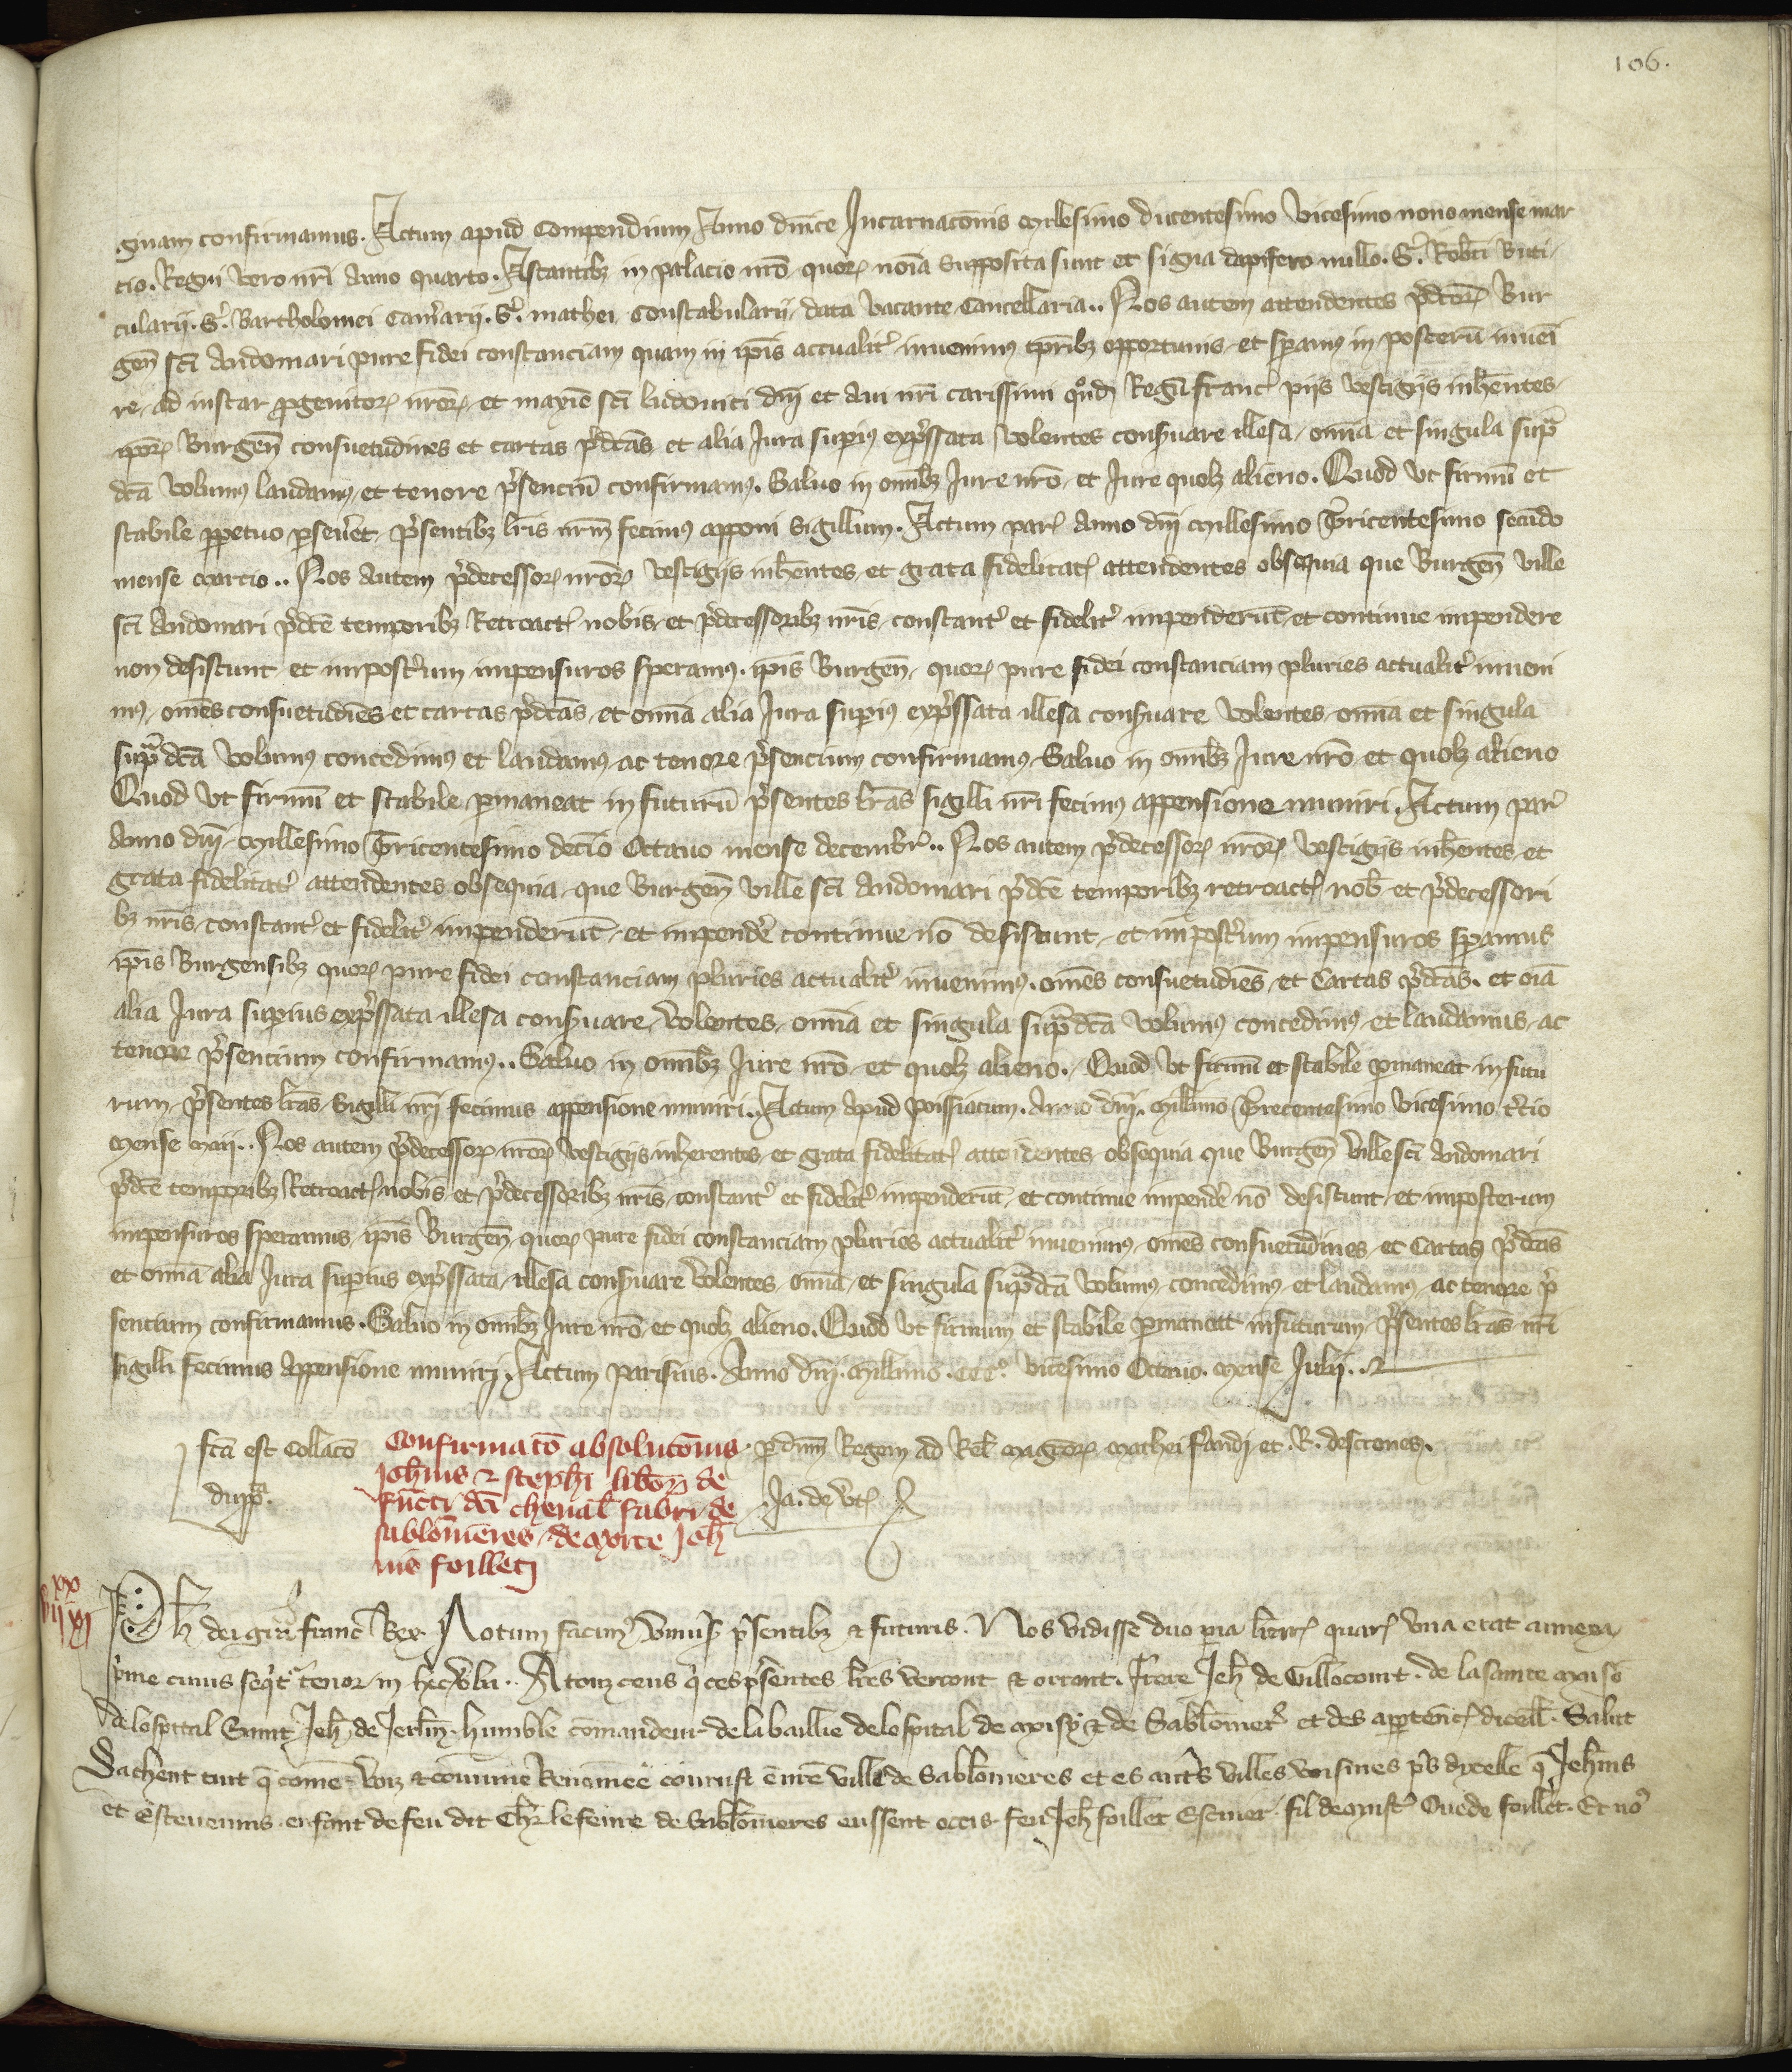 106.
gnam confirmamus. Actum apud Compendium Anno dnice Incarnaconis Millesimo ducentesimo vicesimo nono mense mar
cio. Regni vero nri Anno quarto. Astantibz in palacio nro quorz noia supposita sunt et signa dapifero nullo. S'. Robti buti
cularij. S'. Bartholomei Cam'arij. S'. mathei Constabularij. data vacante Cancellaria.. Nos autem attendentes p'dcorz Bur
gen sci Audomari pure fidei constanciam quam in ipis actualit' inuenimus tpribz opportunis et speramus in posterum inueni
re, ad instar progenitorz nrorz et maxie sci ludouici dni et Aui nri carissimi quond Regu franc' piis vestigijs inherentes
ipsorz Burgen consuetudines et cartas p'dcas et alia Jura superius exp'ssata volentes conseruare illesa, omia et singula sup
dca volumus laudamus, et tenore p'senciu confirmamus. Saluo in omibz Jure nro, et Jure quolz alieno. Quod ut firmu et
stabile perpetuo perseueret, p'sentibz lris nrm fecimus apponi Sigillum. Actum parz Anno dni Millesimo Tricentesimo secudo
mense marcio.. Nos autem p'decessorz nrorz vestigijs inherentes, et grata fidelitatz attendentes obsequia que Burgen ville
sci Audomari p'dce temporibz Retroactz nobis et p'decessoribz nris constant' et fidelit' impenderut, et continue impendere
non desistunt et impost'um impensuros speramus. ipis Burgen, quorz pure fidei constanciam pluries actualit' inueni
mus, omes consuetudies et cartas p'dcas, et omia alia Jura superius exp'ssata illesa conseruare volentes, omia et singula
supradca volumus concedimus et laudamus ac tenore p'sencium confirmamus Saluo in omibz Jure nro et quolz alieno
Quod ut firmu et stabile permaneat in futuru p'sentes lras sigilli nri fecimus appensione muniri. Actum par'
Anno dni Millesimo Tricentesimo decio Octauo mense decembr'.. Nos autem p'decessorz nrorz vestigijs inherentes et
grata fidelitat' attendentes obsequia, que Burgen ville sci Audomari p'dce temporibz retroactz nob et p'decessori
bz nris, constant' et fidelit' impenderut, et impende' continue no desistunt, et impost'um impensuros speramus
ipis Burgensibz quorz pure fidei constanciam pluries actualit' inuenimus. omes consuetudies, et Cartas p'dcas. et oia
alia Jura superius exp'ssata illesa conseruare, volentes, omia et singula supradca volumus concedimus, et laudamus, ac
tenore p'sencium confirmamus.. Saluo in omibz Jure nro et quolz alieno. Quod ut firmu et stabile permaneat in futu
rum, p'sentes lras, Sigilli nri fecimus appensione muniri. Actum Apud poissiacum. Anno dni. Millimo Trecentesimo vicesimo t'cio
Mense Maij.. Nos autem p'decessorz nrorz vestigijs inherentes, et grata fidelitatz attendentes obsequia que Burgen ville sci Audomari
p'dce temporibz Retroactz nobis et p'decessoribz nris constant' et fidelit' impenderut, et continue impende' no desistunt et imposterum
impensuros speramus, ipis Burgen, quorz pure fidei constanciam pluries actualit' inuenimus, omes consuetudines, et Cartas p'dcas
et omia alia Jura superius exp'ssata, illesa conseruare volentes, omia, et singula supradca volumus, concedimus, et laudamus, ac tenore p'
sencium confirmamus. Saluo in omibz Jure nro et quolz alieno. Quod ut firmum et stabile permaneatt in futurum, p'sentes lras nri
sigilli fecimus Appensione muniri. Actum parisius. Anno dni. Millimo. CCCo. vicesimo Octauo. Mense Julij.
fca est Collaco
dupl'.
Confirmato absolutonis
Johnis & stephi liborz de
functi dci cheual' fabri de
sablonieres, de morte Joh
nis foilleti
p dnm Regem ad Rel' magrorz mathei f'randi et .R. descones.
Ja. de vtz
vii xx xi
Ph dei gra franc Rex Notum facimus vniuis' p'sentibz & futuris. Nos vidisse duo paria litterarz quarz vna erat annexa
p'me cuius sequit' tenor in hec verba.. A touz ceus q' ces p'sentes lres verront & orront. frere Jeh de Villocourt. de la sainte mayso
de lospital Saint Jeh de Jerlm. humble comandeur de la baillie de lospital de moisy & de Sablonier' et des apptencz dicell'. Salut
Sachent tuit q' come voiz & comune Renomee courust e nre ville de Sablonieres et es aut's villes voisines p's dycelle q' Jehnis
et Esteuenins enfant de feu dit Chr' le feure de Sablonieres eussent occis feu Jeh foillet Escuier fil de monst' Ouede foillet. Et no'